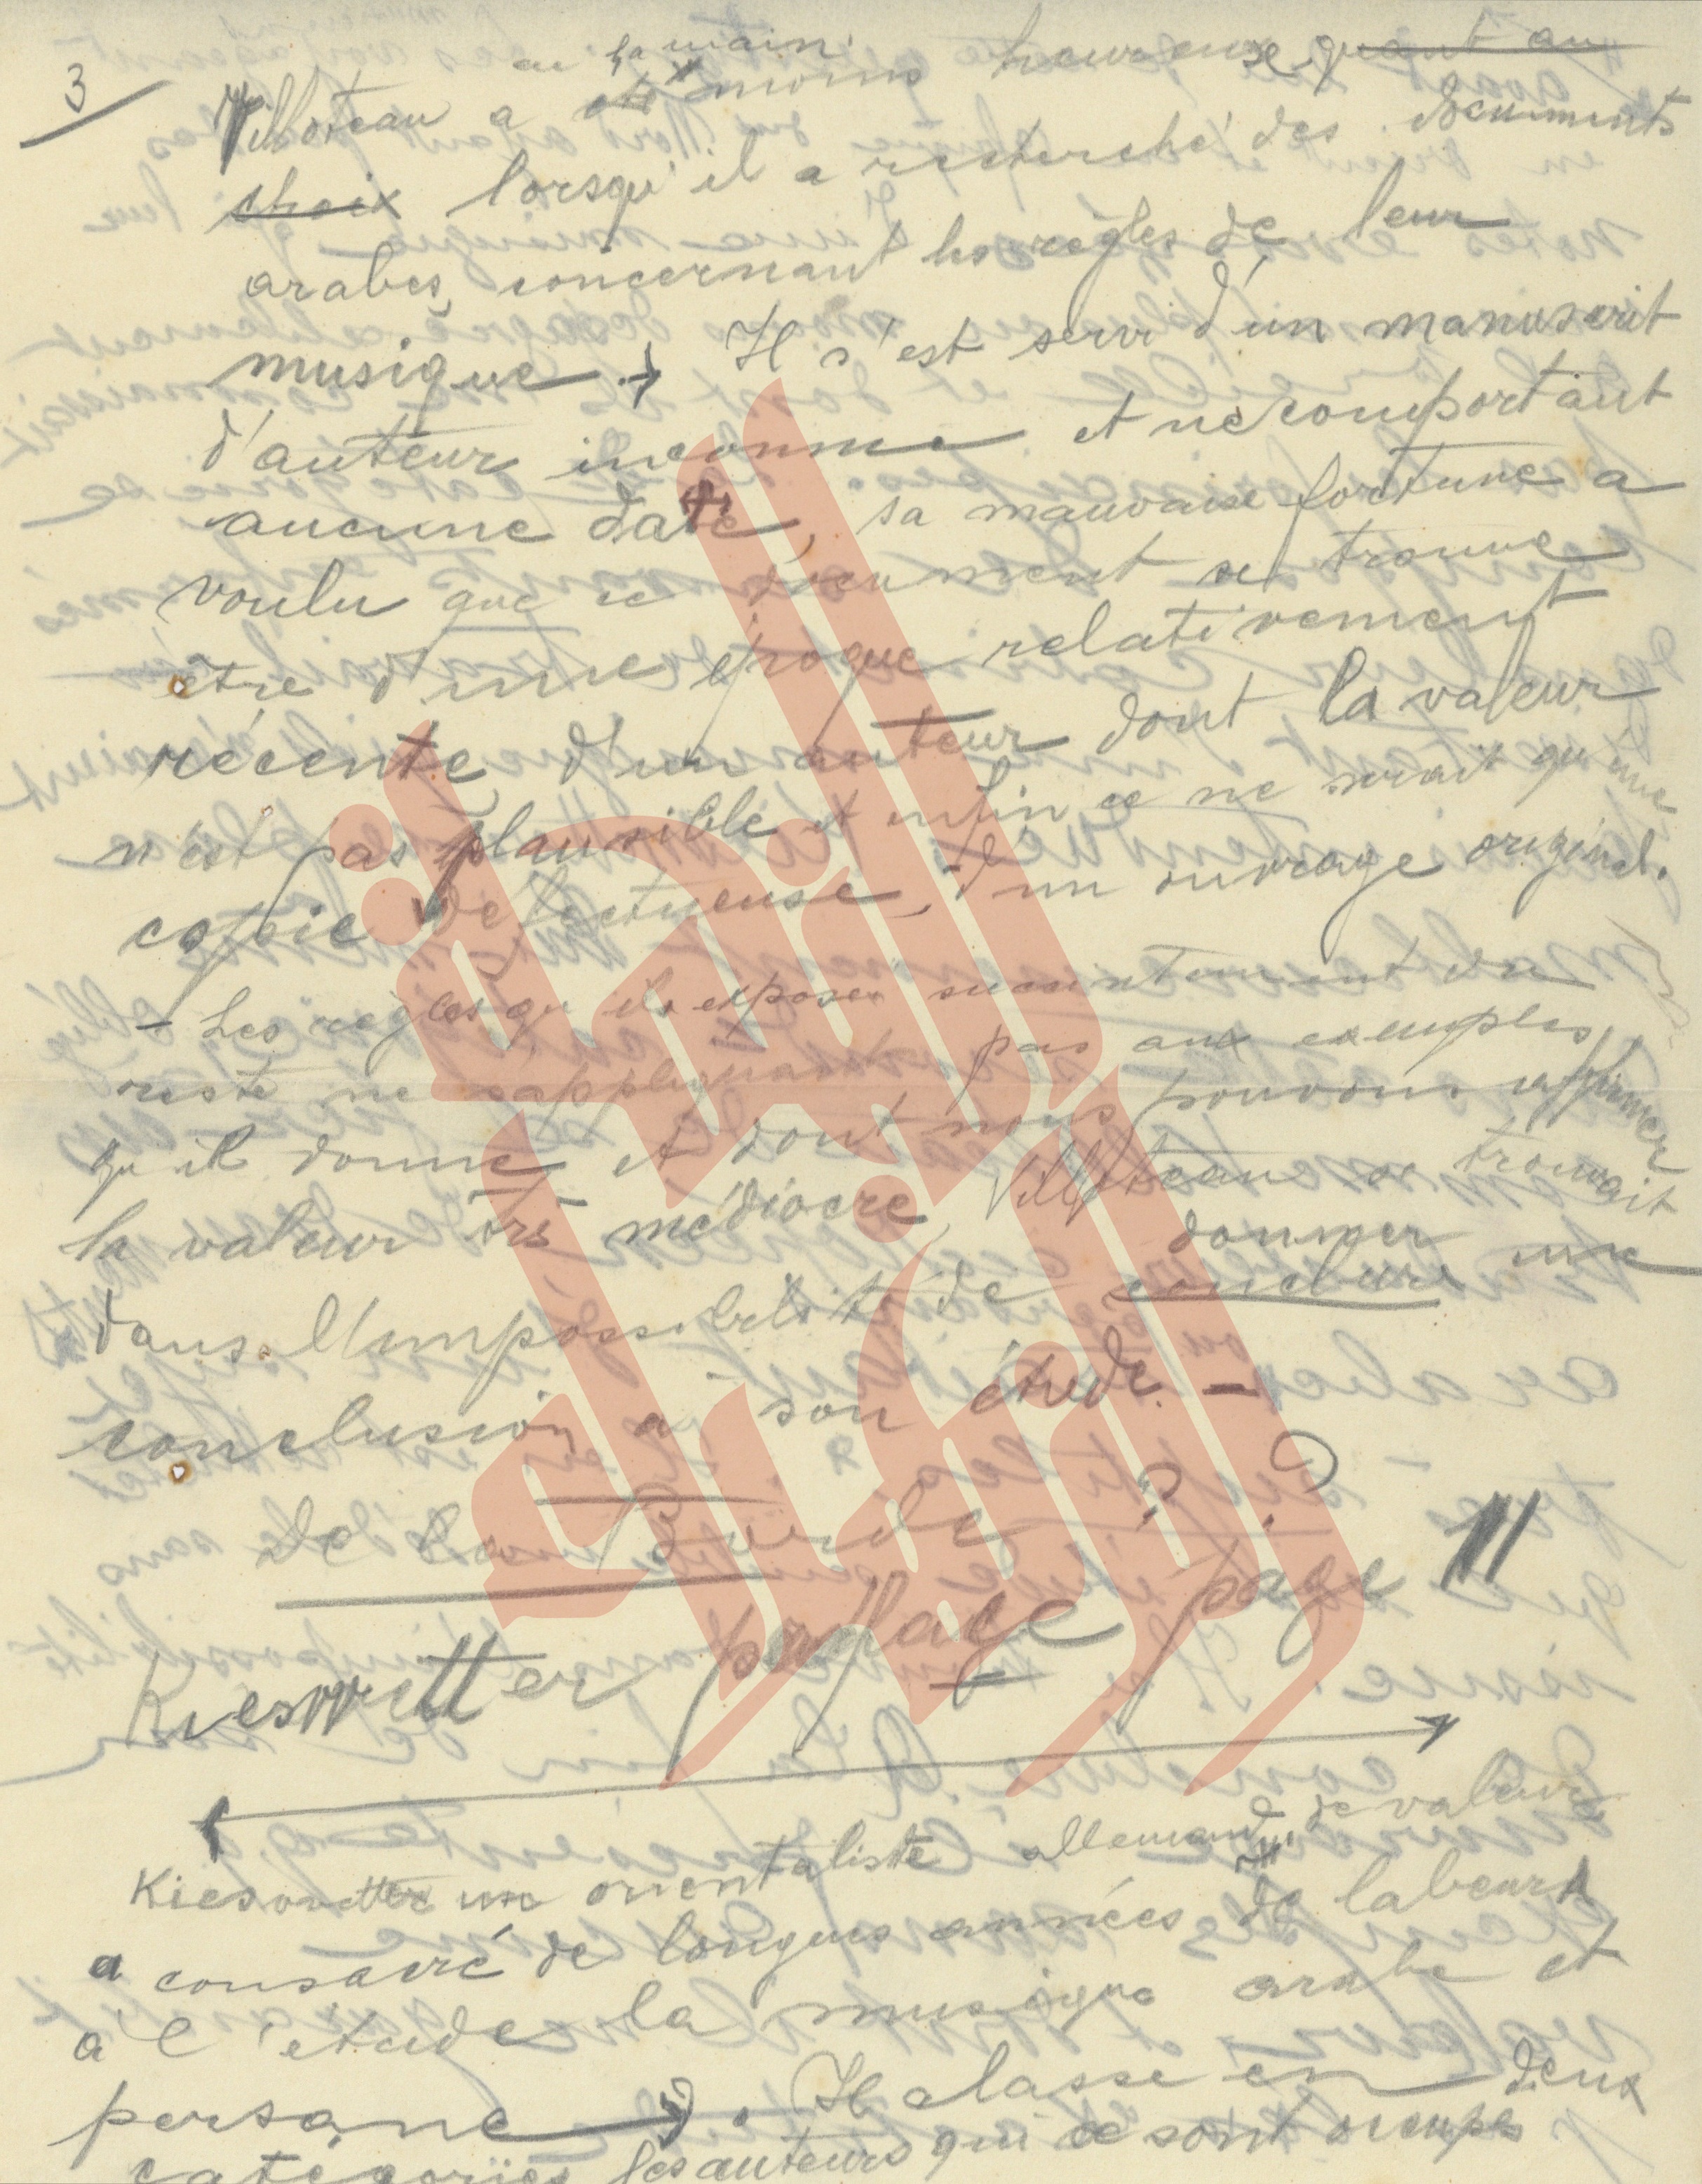 3
eu la main
Villoteau a été moins heureuse quant au
choix lorsqu'il a recherché des documents
arabes concernant les règles de leur
musique. Il s'est servi d'un manuscrit
d'auteur inconnu et ne comportant
aucune date, sa mauvaise fortune a
voulu que ce document se trouve
être d'une époque relativement
récente, d'un auteur dont la valeur
n'est pas plausible et enfin ce ne serait qu'une
copie défectueuse, d'un ouvrage original.
- Les règles qu'ils exposer succintement du
reste ne s'appliquant pas aux exemples
qu'il donne et dont nous pouvons affirmer
la valeur très médiocre, Villoteau se trouvait
donner
dans l'impossibilité de conclure une
conclusion a son étude. -
De la Borde ? ?
Kieswetter préface page III
Kieswetter un orientaliste allemand de valeur
a consacré de longues années de labeur
a l'etude la musique arabe et
persane. Il classe en deux
catégories les auteurs qui se sont occupés